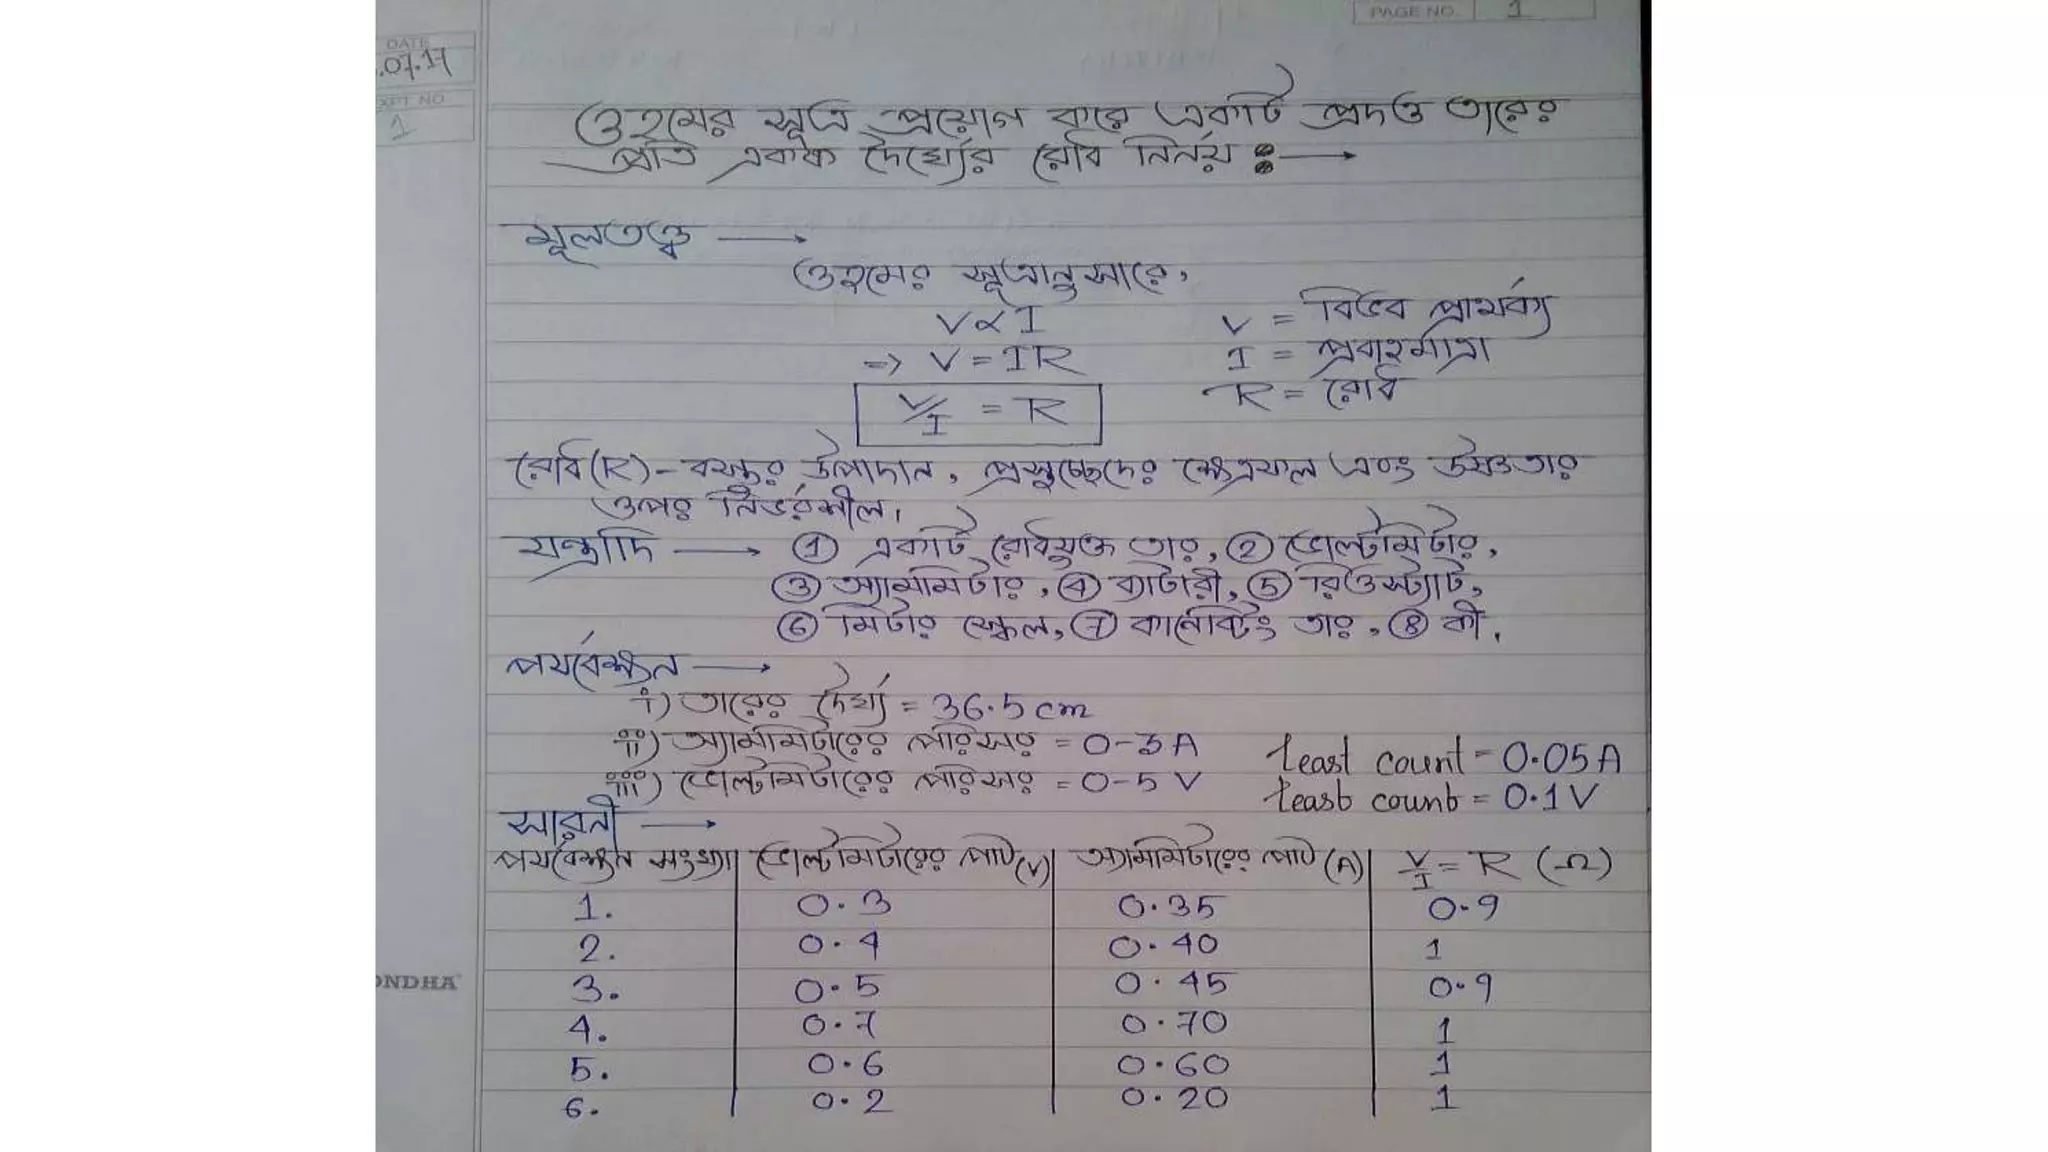 PAGE NO. 1
DATE
.07.17
EXPT NO
1
ওহমের সূত্র প্রয়োগ করে একটি প্রদত্ত তারের
প্রতি একক দৈর্ঘ্যের রোধ নির্নয় :→
মূলতত্ত্ব →
ওহমের সূত্রানুসারে,
V ∝ I
V = বিভব প্রার্থক্য
=> V = IR
I = প্রবাহমাত্রা
V/I = R
R = রোধ
রোধ (R) - বস্তুর উপাদান, প্রস্থচ্ছেদের ক্ষেত্রফল এবং উষ্ণতার
ওপর নির্ভরশীল।
যন্ত্রাদি → ① একটি রোধযুক্ত তার, ② ভোল্টমিটার,
③ অ্যামমিটার, ④ ব্যাটারী, ⑤ রিওস্ট্যাট,
⑥ মিটার স্কেল, ⑦ কানেক্টিং তার, ⑧ কী.
পর্যবেক্ষন →
i) তারের দৈর্ঘ্য = 36.5 cm
ii) অ্যামমিটারের পরিসর = 0-3 A least count = 0.05 A
iii) ভোল্টমিটারের পরিসর = 0-5 V least count = 0.1 V
সারনী →
পর্যবেক্ষন সংখ্যা ভোল্টমিটারের পাঠ (V) অ্যামমিটারের পাঠ (A) V/I = R (Ω)
1. 0.3 0.35 0.9
2. 0.4 0.40 1
3. 0.5 0.45 0.9
4. 0.7 0.70 1
5. 0.6 0.60 1
6. 0.2 0.20 1
ONDHA